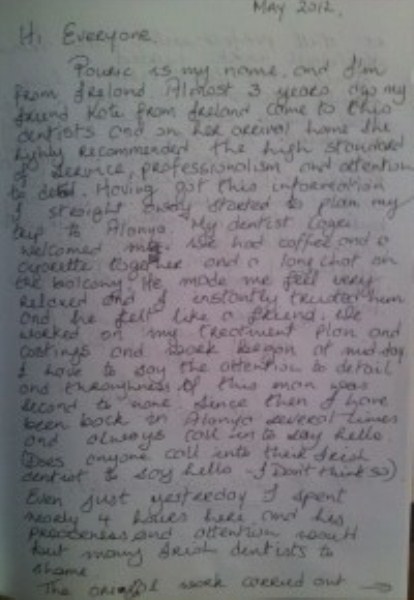 MAY 2012.
Hi Everyone
Pouric is my name, and I'm
from Ireland. Almost 3 years ago my
friend Kate from Ireland came to this
dentists and on her arrival home she
highly recommended the high standard
of service, professionalism and attention
to detail. Having got this information
I straight away started to plan my
trip to Alanya. My dentist
welcomed me. We had coffee and a
cigarette together and a long chat on
the balcony. He made me feel very
relaxed and I instantly trusted him
and he felt like a friend. We
worked on my treatment plan and
costings and work began at mid day
I have to say the attention to detail
and thoroughness of this man was
second to none. Since then I have
been back in Alanya several times
and always call in to say hello.
(Does anyone call into their Irish
dentist to say hello - I Don't think so)
Even just yesterday I spent
nearly 4 hours here and his
and attention would
put many Irish dentists to
shame
The original work carried out →